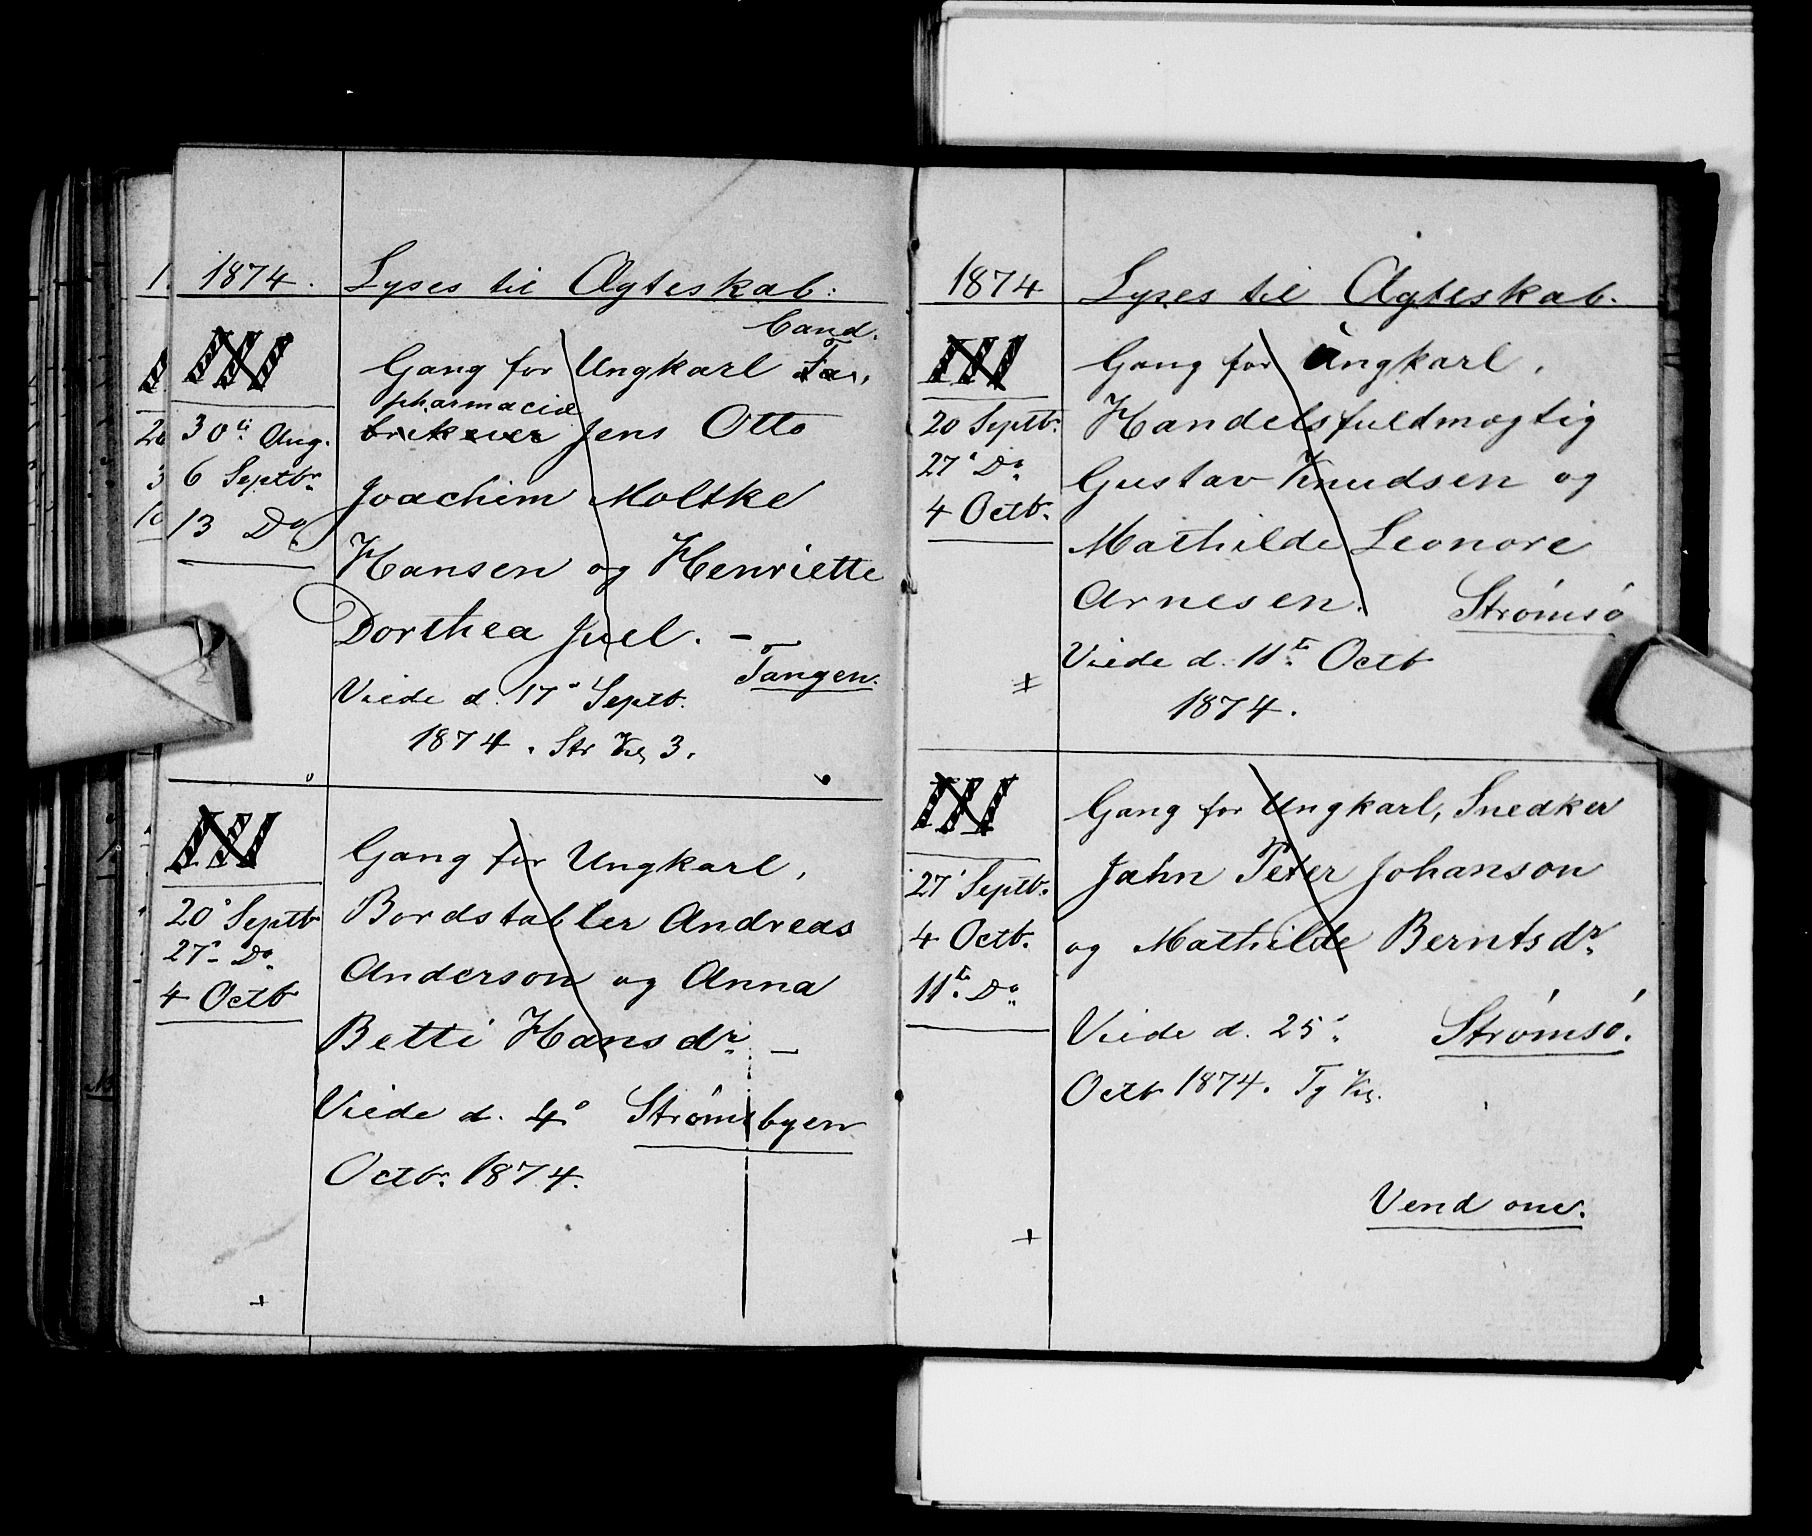 1874.
Lyses til Ægteskab:
III
30 Aug.
6 Septbr.
13 Do
Cand.
Gang for Ungkarl Fa,
pharmaciæ
brikever Jens Otto
Joachim Moltke
Hansen og Henriette
Dorthea Juel. –
Tangen.
Viede d. 17 Septb.
1874. Str Kk 3.
III
20 Septb
27 Do
4 Octb
Gang for Ungkarl,
Bordstabler Andreas
Anderson og Anna
Betti Hansdr. –
Viede d. 4 Strømsbyen
Octb. 1874.
1874
Lyses til Ægteskab.
III
20 Septb.
27 Do
4 Octb.
Gang for Ungkarl,
Handelsfuldmægtig
Gustav Knudsen og
Mathilde Leonore
Arnesen. Strømsø
Viede d. 11te Octb
1874.
III
27 Septb.
4 Octb.
11te Do
Gang for Ungkarl, Snedker
Jahn Peter Johanson
og Mathilde Berntsdr.
Viede d. 25 Strømsø.
Octb 1874. Tg Kk.
Vend om.